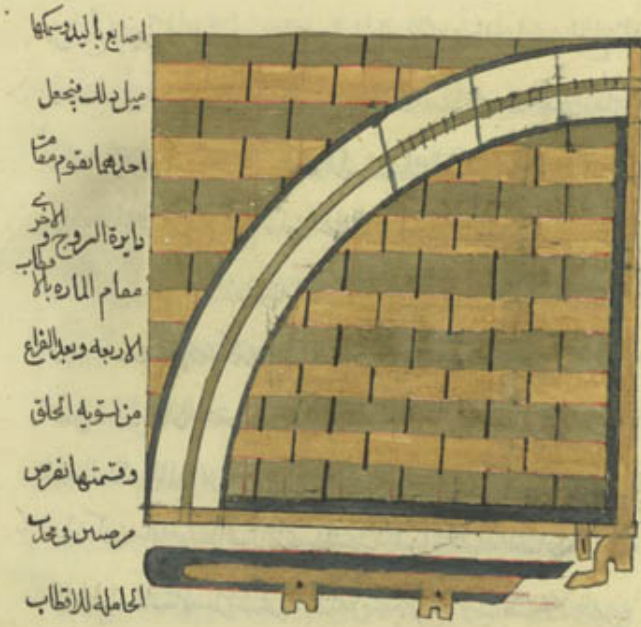 اصابع باليد وسمكها
ميل ذلك فيجعل
احدهما يقوم مقام
دايرة البروج و الاخرى
مقام الماره بالاقطاب
الاربعه وبعد الفراغ
من تسويه الحلق
وقسمتها نفرض
فى محدب
الحامله للاقطاب